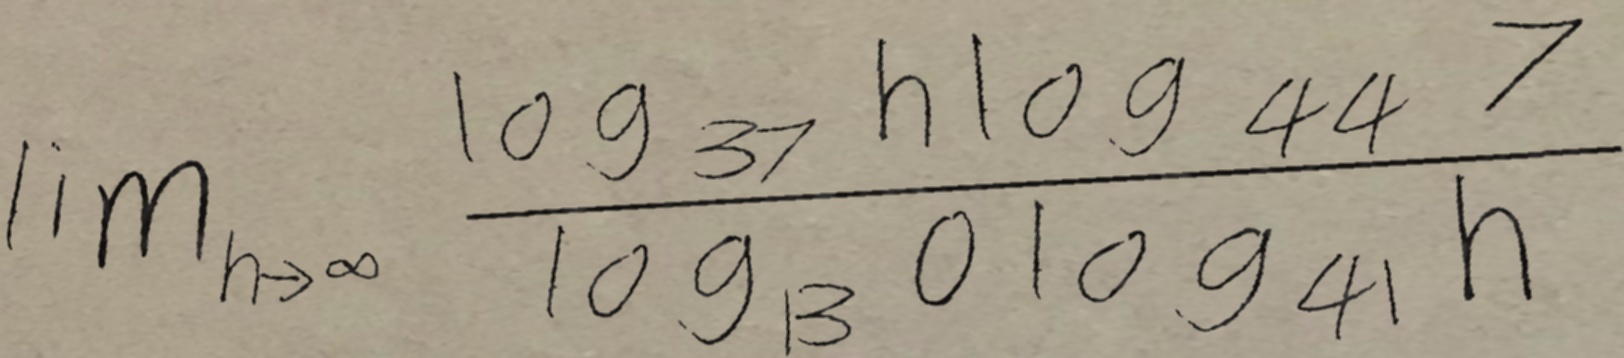 lim_{h→∞} \frac{log_{37} h log_{44} 7}{log_{13} 0 log_{41} h}